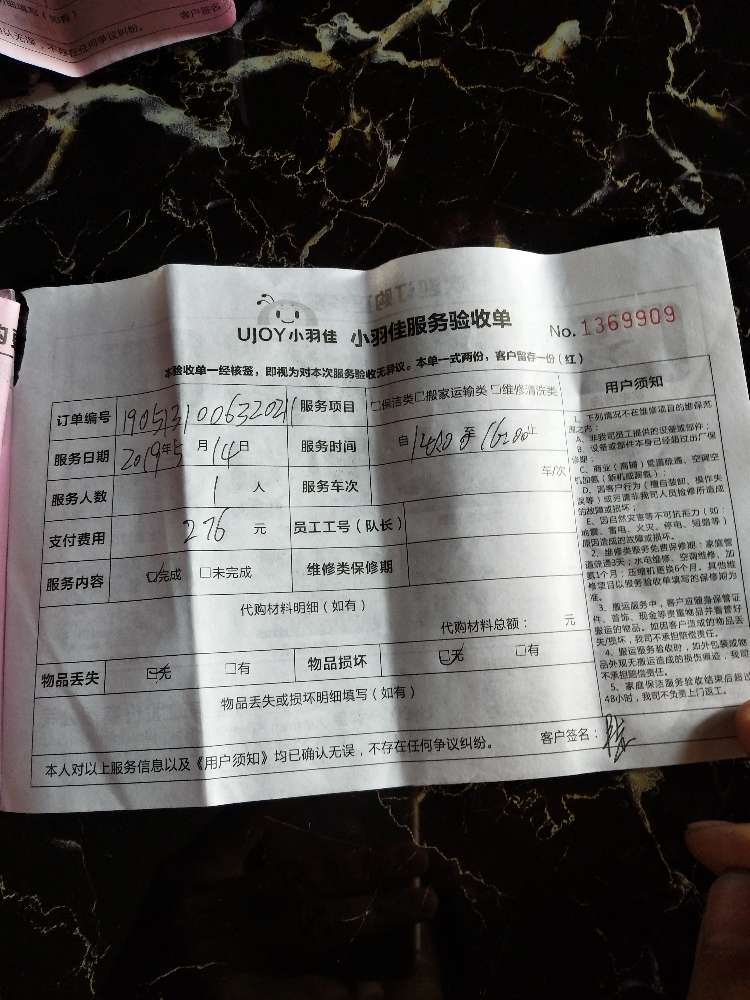 客户签名
认无误，不存在任何争议纠纷。
UJOY小羽佳 小羽佳服务验收单 No. 1369909
本验收单一经核签，即视为对本次服务验收无异议。本单一式两份，客户留存一份（红）
订单编号 服务项目 □保洁类□搬家运输类□维修清洗类
服务日期 2019年5月14日 服务时间 自14:00至16:00止
服务人数 1 人 服务车次 车/次
支付费用 276 元 员工工号（队长）
服务内容 □完成 □未完成 维修类保修期
代购材料明细（如有）
代购材料总额： 元
物品丢失 □无 □有 物品损坏 □无 □有
物品丢失或损坏明细填写（如有）
本人对以上服务信息以及《用户须知》均已确认无误，不存在任何争议纠纷。 客户签名：
用户须知
1、下列情况不在维修项目的维保范
围之内：
A、非我司员工提供的设备或部件；
B、设备或部件本身已经超过出厂保
修期；
C、商业（商铺）管道疏通、空调空
机加氟（新机或漏氟）；
D、因客户行为（擅自装卸、操作失
误等）或另请非我司人员检修所造成
的故障或损坏；
E、因自然灾害等不可抗拒力（如：
地震、雷电、火灾、停电、短路等）
原因造成的故障或损坏。
2、维修类服务免费保修期：家庭管
道疏通3天；水电维修、空调维修、加
氟1个月；压缩机更换6个月。其他维
修项目以服务验收单填写的保修期为
准。
3、搬运服务中，客户应随身保管证
件、首饰、现金等贵重物品并看管好
搬运的物品。如因客户造成的物品丢
失/损坏，我司不承担赔偿责任。
4、搬运服务验收时，如外包装或物
品外观无搬运造成的损伤痕迹，我司
不承担赔偿责任。
5、家庭保洁服务验收结束后超过
48小时，我司不负责上门返工。